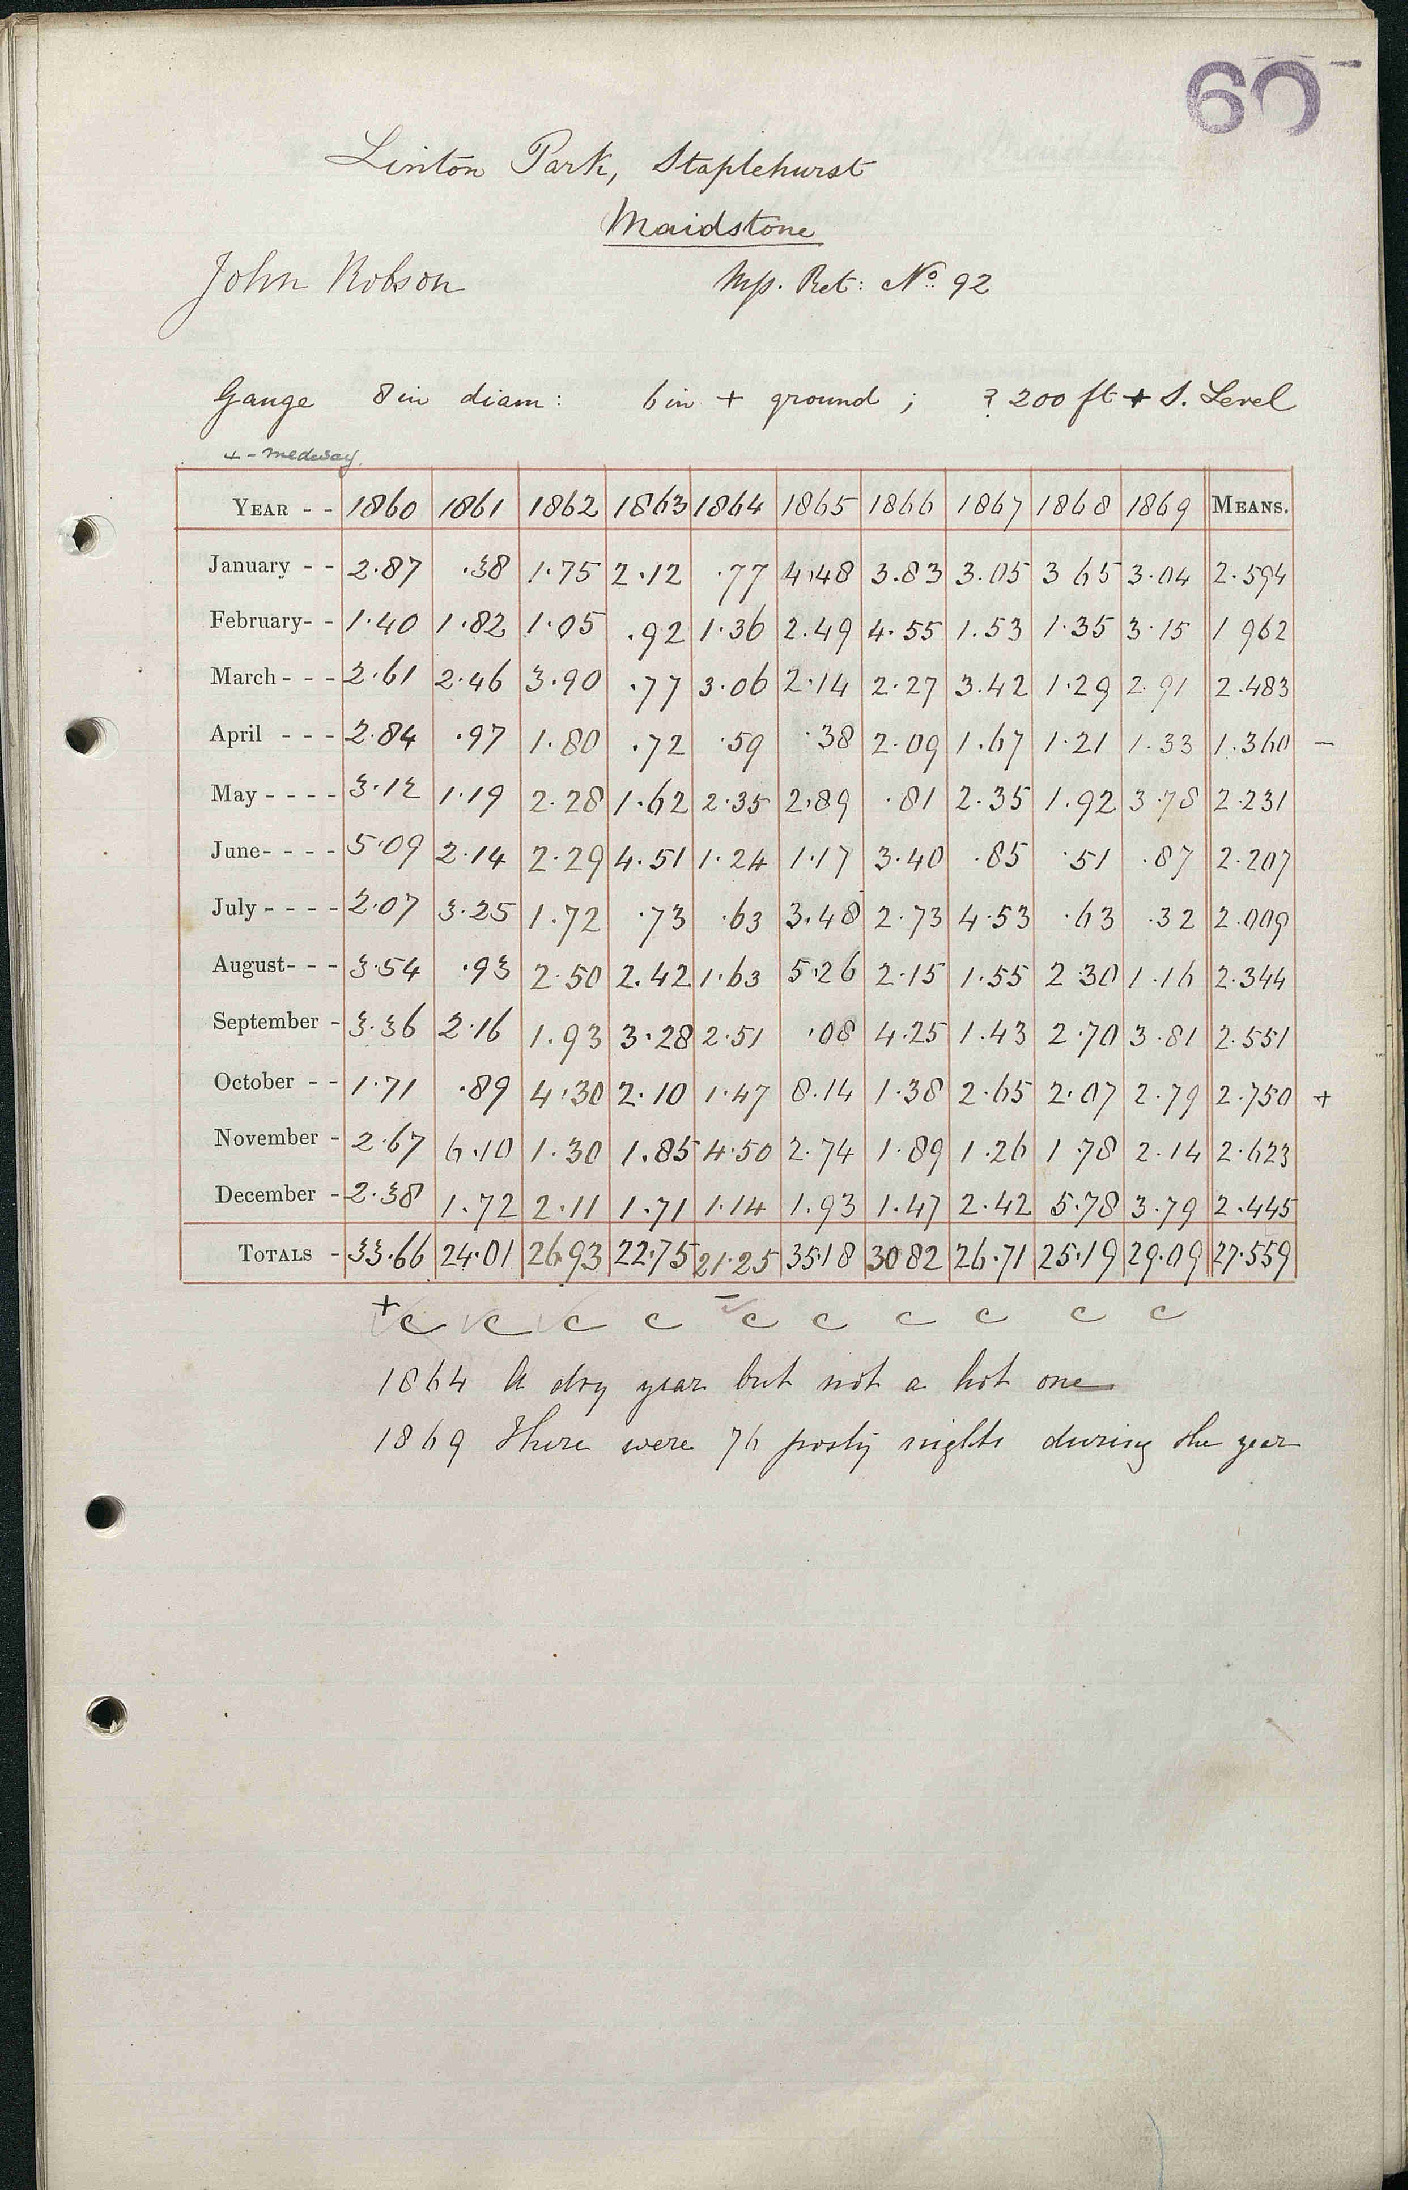 60
Linton Park, Staplehurst
Maidstone
John Robson Mps. Ret: No. 92
Gauge 8 in diam: 6 in + ground ; ? 200 ft + S. Level
+ - medway
YEAR - - 1860 1861 1862 1863 1864 1865 1866 1867 1868 1869 MEANS.
January - - 2.87 .38 1.75 2.12 .77 4.48 3.83 3.05 3 65 3.04 2.594
February- - 1.40 1.82 1.05 .92 1.36 2.49 4.55 1.53 1.35 3.15 1 962
March - - - 2.61 2.46 3.90 .77 3.06 2.14 2.27 3.42 1.29 2.91 2.483
April - - - 2.84 .97 1.80 .72 .59 .38 2.09 1.67 1.21 1.33 1.360 -
May - - - - 3.12 1.19 2.28 1.62 2.35 2.89 .81 2.35 1.92 3.78 2.231
June- - - - 5.09 2.14 2.29 4.51 1.24 1.17 3.40 .85 .51 .87 2.207
July - - - - 2.07 3.25 1.72 .73 .63 3.48 2.73 4.53 .63 .32 2.009
August- - - 3.54 .93 2.50 2.42 1.63 5.26 2.15 1.55 2 30 1.16 2.344
September - 3.36 2.16 1.93 3.28 2.51 .08 4.25 1.43 2.70 3.81 2.551
October - - 1.71 .89 4.30 2.10 1.47 8.14 1.38 2.65 2.07 2.79 2.750 +
November - 2.67 6.10 1.30 1.85 4.50 2.74 1.89 1.26 1.78 2.14 2.623
December - 2.38 1.72 2.11 1.71 1.14 1.93 1.47 2.42 5.78 3.79 2.445
TOTALS - 33.66 24.01 26.93 22.75 21.25 35.18 30 82 26.71 25.19 29.09 27.559
+ c c c c - c c c c c c
1864 A dry year but not a hot one
1869 There were 76 frosty nights during the year